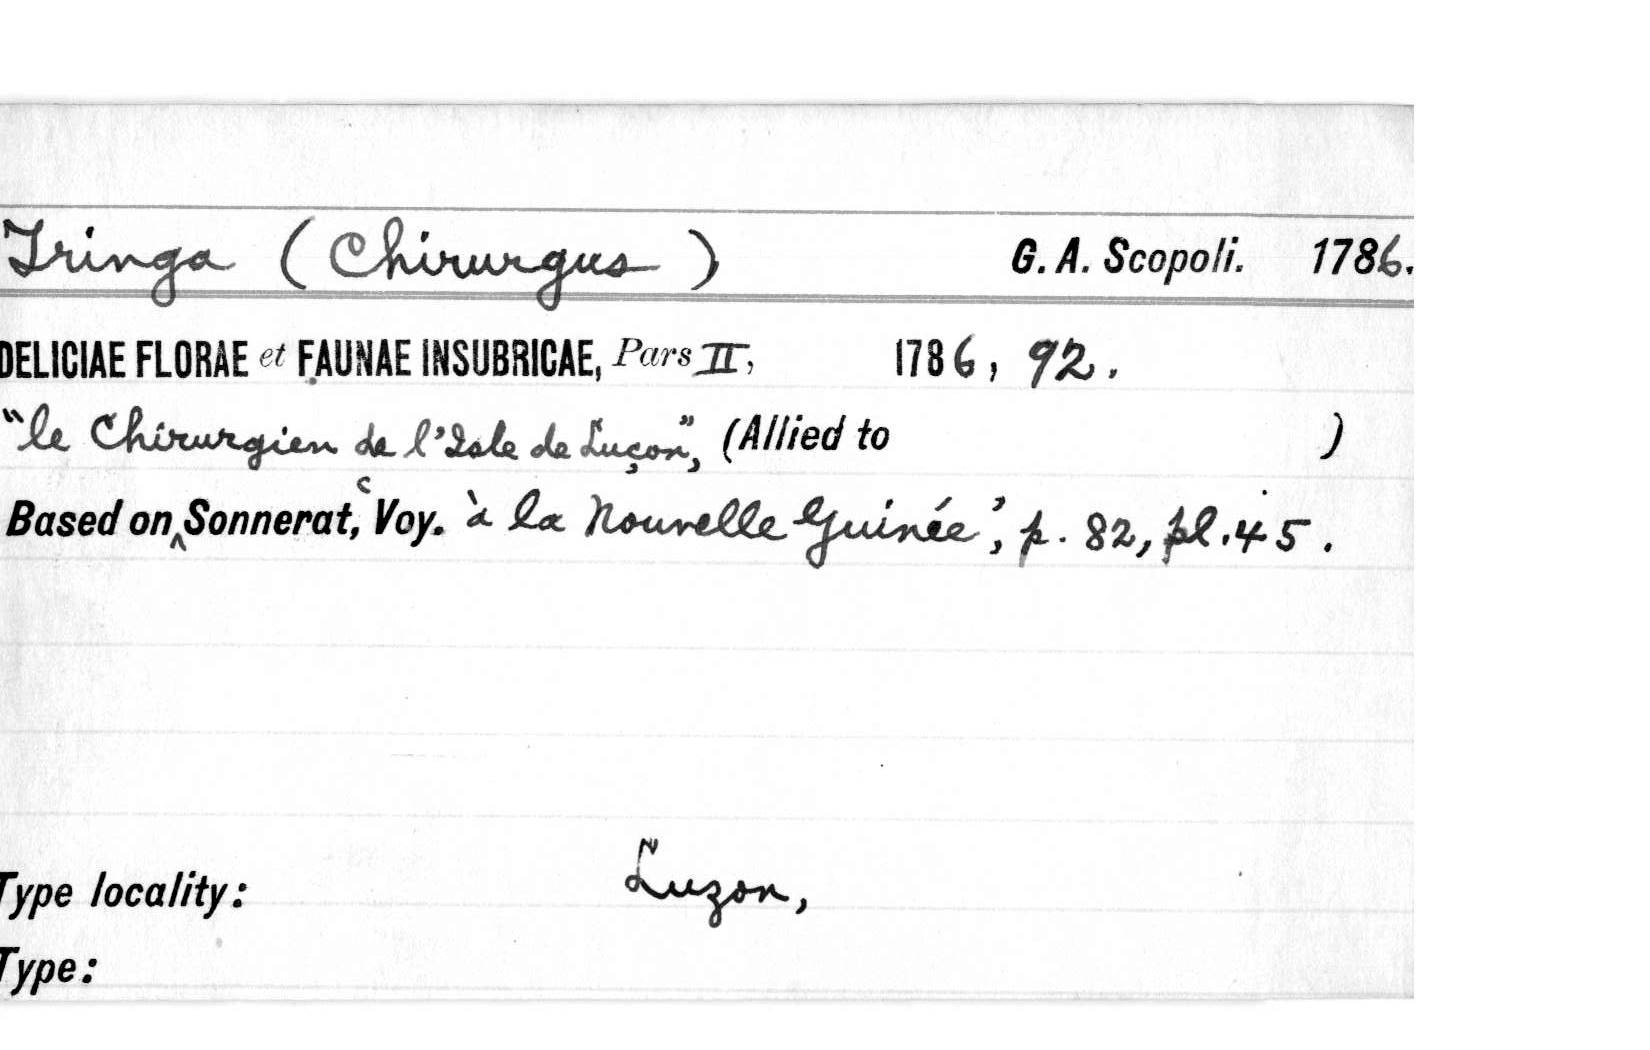 Tringa (Chirurgus) G. A. Scopoli. 1786.
DELICIAE FLORAE et FAUNAE INSUBRICAE, Pars II, 1786, 92.
"le Chirurgien de l'Isle de Luçon", (Allied to )
Based on ‸ Sonnerat, ‘Voy. à la Nouvelle Guinée’, p. 82, pl. 45.
Luzon,
Type locality:
Type: